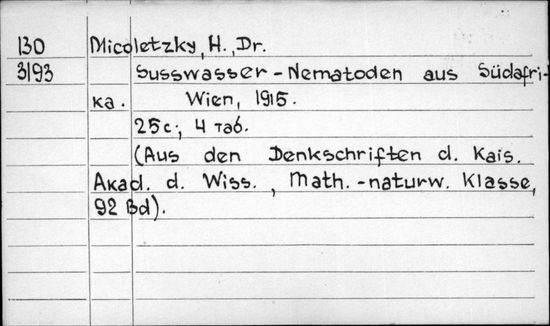 130 Micoletzky, H., Dr.
3193 Susswasser-Nematoden aus Südafri-
ka. Wien, 1915.
25 c.; 4 таб.
(Aus den Denkschriften d. Kais.
Akad. d. Wiss., Math.-naturw. Klasse,
92 Bd).